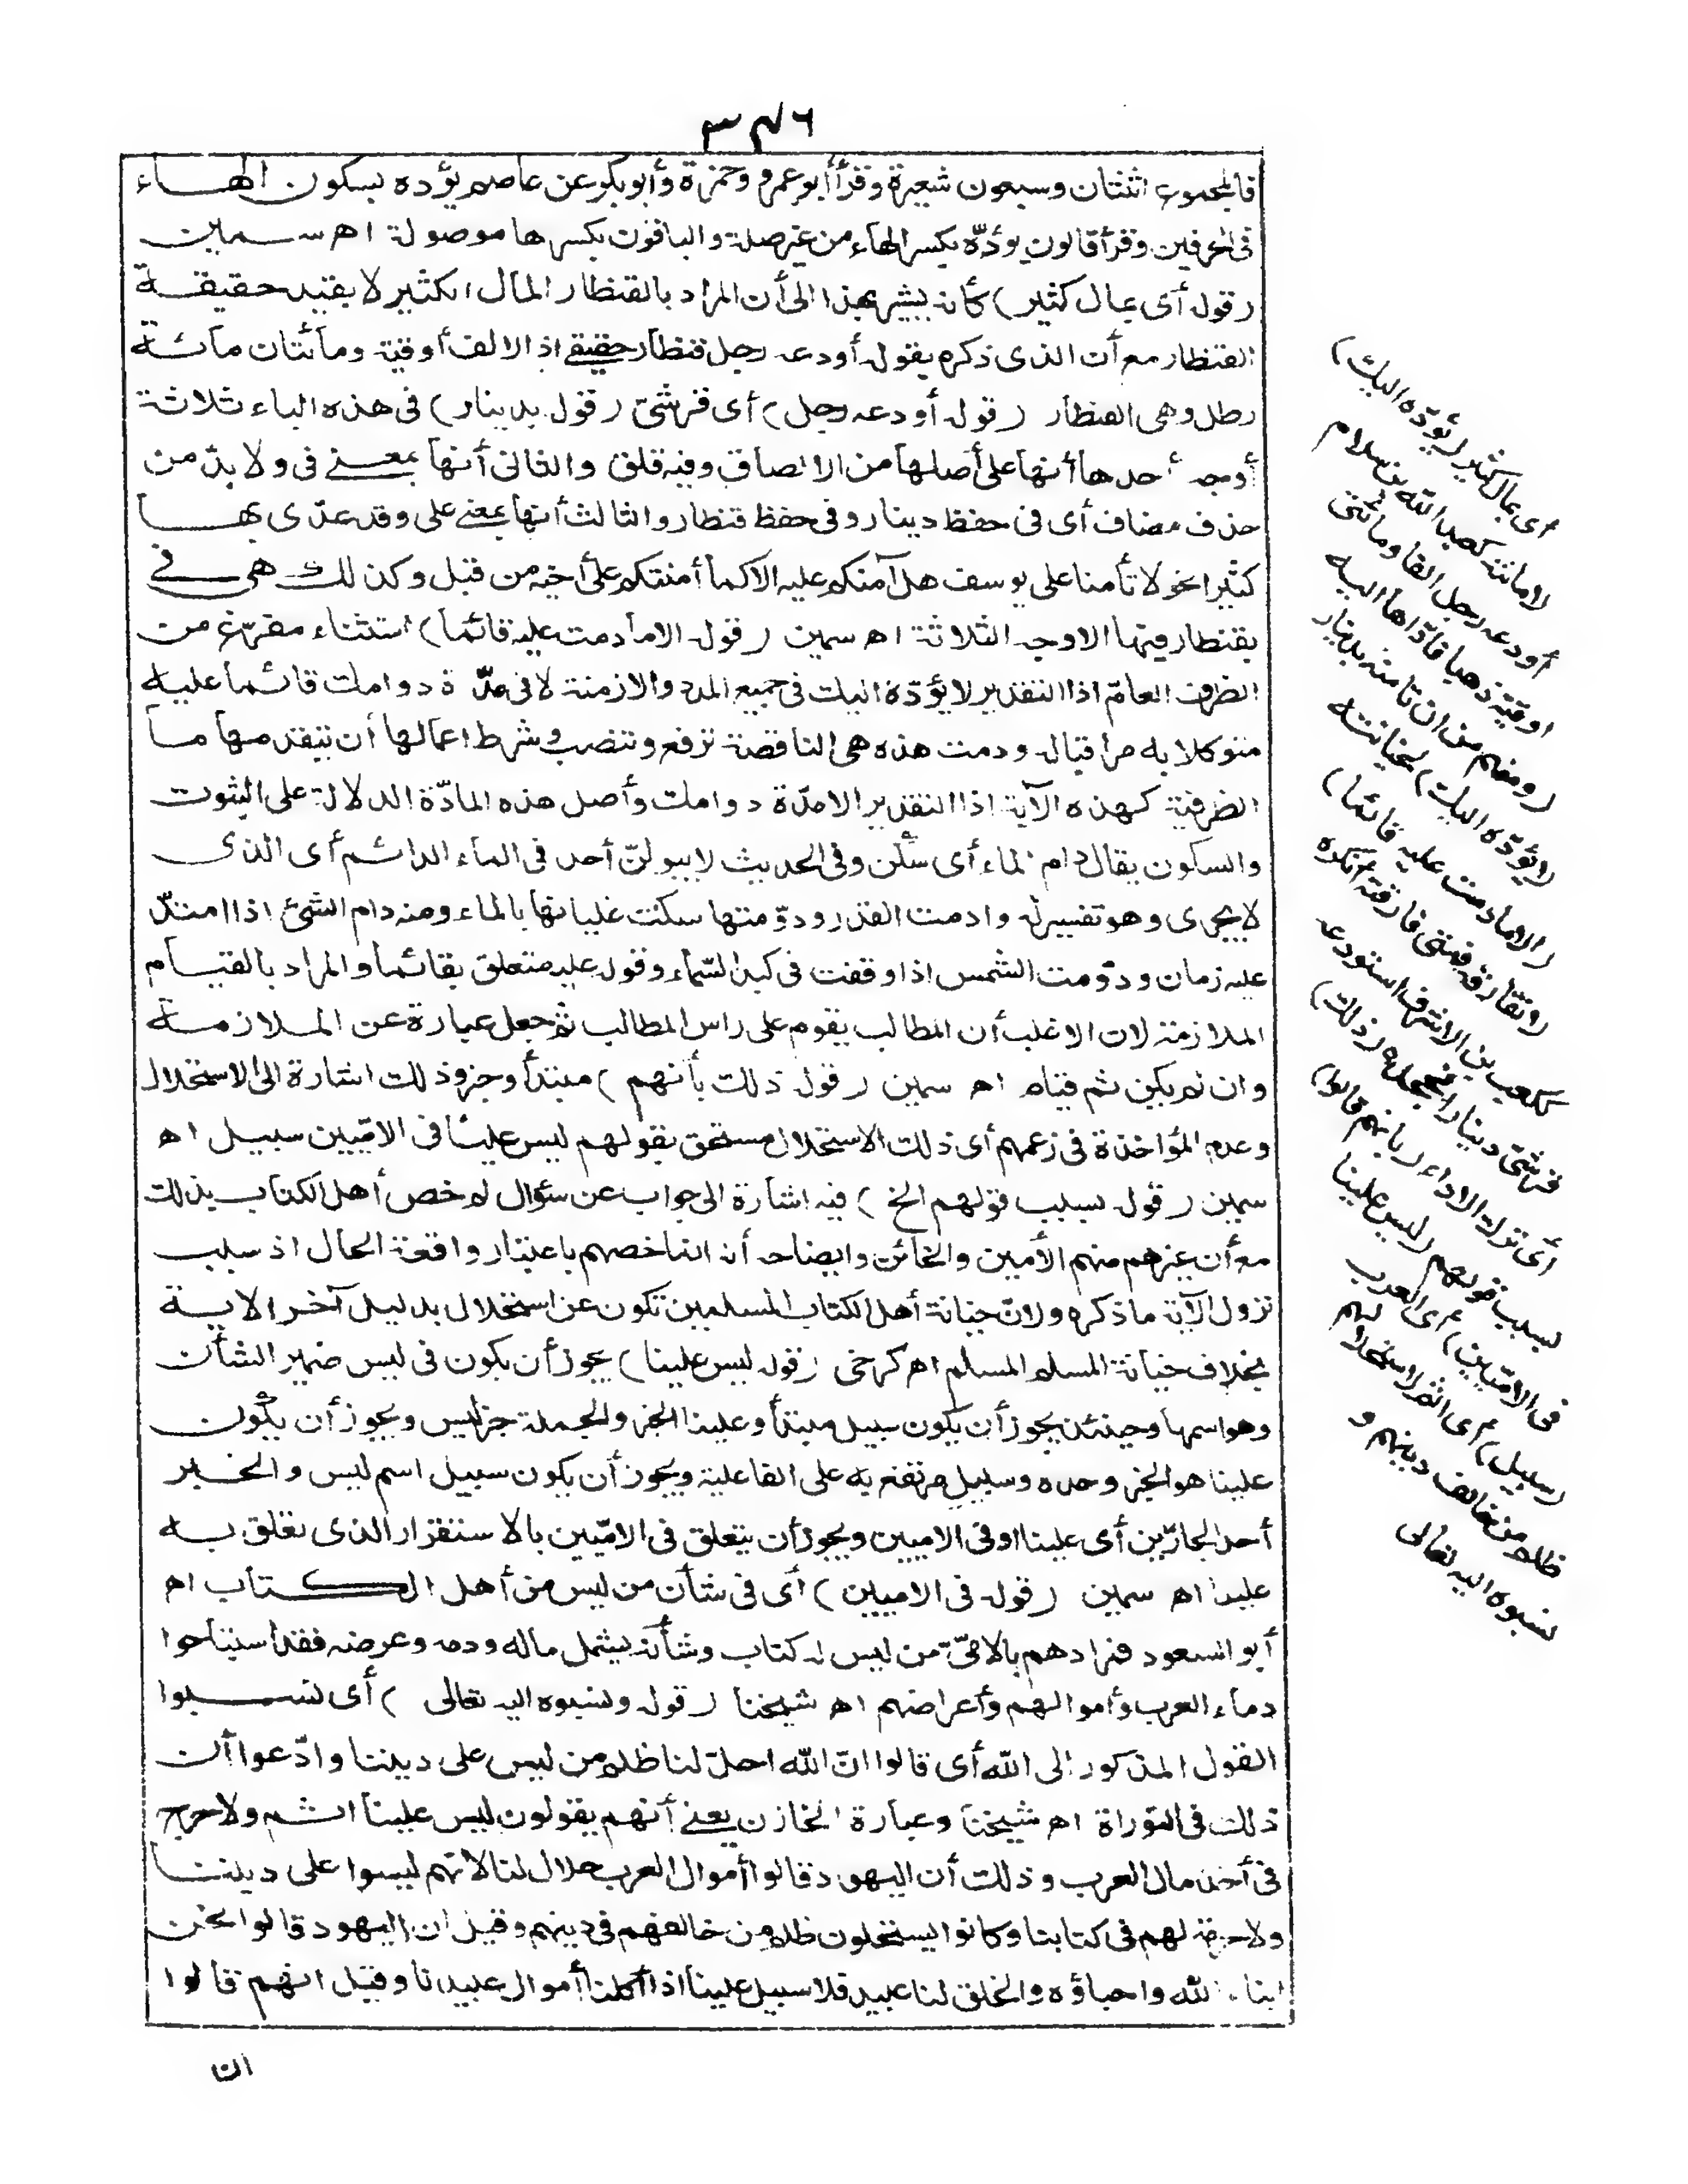 ٣٤٦
فالمجموع اثنتان وسبعون شعيرة وقرأ أبو عمرو وحمزة وأبو بكر عن عاصم يؤده بسكون الهاء
فى الحرفين وقرأ قالون يؤدّه بكسر الهاء من غير صلة والباقون بكسرها موصولة اه سمين
(قوله أى بمال كثير) كأنه يشير بهذا الى أن المراد بالقنطار المال الكثير لا بقيد حقيقة
القنطار مع أن الذى ذكره بقوله أودعه رجل قنطار حقيقى اذ الالف أوقية ومائتان مائة
رطل وهى القنطار (قوله أودعه رجل) أى قرشىّ (قوله بدينار) فى هذه الباء ثلاثة
أوجه أحدها أنها على أصلها من الالصاق وفيه قلق والثانى أنها بمعنى فى ولا بدّ من
حذف مضاف أى فى حفظ دينار وفى حفظ قنطار والثالث أنها بمعنى على وقد عدّى بها
كثيرا نحو لا تأمنا على يوسف هل آمنكم عليه الا كما أمنتكم على أخيه من قبل وكذلك هى فى
بقنطار فيها الاوجه الثلاثة اه سمين (قوله الا ما دمت عليه قائما) استثناء مفرّغ من
الظرف العامّ اذا التقدير لا يؤدّه اليك فى جميع المدد والازمنة لا فى مدّة دوامك قائما عليه
متوكلا به مراقبا له ودمت هذه هى الناقصة ترفع وتنصب وشرط اعمالها أن يتقدمها ما
الظرفية كهذه الآية اذا التقدير الا مدّة دوامك وأصل هذه المادّة الدلالة على الثبوت
والسكون يقال دام الماء أى سكن وفى الحديث لا يبولنّ أحد فى الماء الدائم أى الذى
لا يجرى وهو تفسير له وادمت القدر ودوّمتها سكنت غليانها بالماء ومنه دام الشئ اذا امتدّ
عليه زمان ودوّمت الشمس اذا وقفت فى كبد السّماء وقوله عليه متعلق بقائما والمراد بالقيام
الملازمة لان الاغلب أن المطالب يقوم على راس المطالب ثم جعل عبارة عن الملازمة
وان لم يكن ثم قيام اه سمين (قوله ذلك بأنهم) مبتدأ وخبر وذلك اشارة الى الاستحلال
وعدم المؤاخذة فى زعمهم أى ذلك الاستحلال مستحق بقولهم ليس علينا فى الامّيين سبيل اه
سمين (قوله بسبب قولهم الخ) فيه اشارة الى جواب عن سؤال لم خص أهل الكتاب بذلك
مع أن غيرهم منهم الأمين والخائن وايضاحه أنه انما خصهم باعتبار واقعة الحال اذ سبب
نزول الآية ما ذكره ولانّ خيانة أهل الكتاب المسلمين تكون عن استحلال بدليل آخر الاية
بخلاف خيانة المسلم المسلم اه كرخى (قوله ليس علينا) يجوز أن يكون فى ليس ضمير الشأن
وهو اسمها وحينئذ يجوز أن يكون سبيل مبتدأ وعلينا الخبر والجملة خبر ليس ويجوز أن يكون
علينا هو الخبر وحده وسبيل مرتفع به على الفاعلية ويجوز أن يكون سبيل اسم ليس والخبر
أحد الجارّين أى علينا او فى الاميين ويجوز أن يتعلق فى الامّيين بالاستقرار الذى تعلق به
علينا اه سمين (قوله فى الاميين) أى فى شأن من ليس من أهل الكتاب اه
أبو السعود فمرادهم بالامّىّ من ليس له كتاب وشأنه يشمل ماله ودمه وعرضه فقد استباحوا
دماء العرب وأموالهم وأعراضهم اه شيخنا (قوله ونسبوه اليه تعالى) أى نسبوا
القول المذكور الى اللّه أى قالوا انّ اللّه احلّ لنا ظلم من ليس على ديننا وادّعوا أن
ذلك فى التوراة اه شيخنا وعبارة الخازن يعنى أنهم يقولون ليس علينا اثم ولا حرج
فى أخذ مال العرب وذلك أن اليهود قالوا أموال العرب حلال لنا لانهم ليسوا على ديننا
ولا حرمة لهم فى كتابنا وكانوا يستحلون ظلم من خالفهم فى دينهم وقيل ان اليهود قالوا نحن
ابناء اللّه واحباؤه والخلق لنا عبيد فلا سبيل علينا اذا أكلنا أموال عبيدنا وقيل انهم قالوا
ان
أى بمال كثير (يؤدّه اليك)
لامانته كعبد اللّه بن سلام
أودعه رجل الفا ومائتى
اوقيّة ذهبا فأدّاها اليه
(ومنهم من ان تأمنه بدينار
لا يؤدّه اليك) لخيانته
(الا ما دمت عليه قائما)
لا تفارقه فمتى فارقته أنكره
ككعب بن الاشرف استودعه
قرشىّ دينارا فجحده (ذلك)
أى ترك الاداء (بانهم قالوا)
بسبب قولهم (ليس علينا
فى الامّيين) أى العرب
(سبيل) أى اثم لاستحلالهم
ظلم من خالف دينهم و
نسبوه اليه تعالى